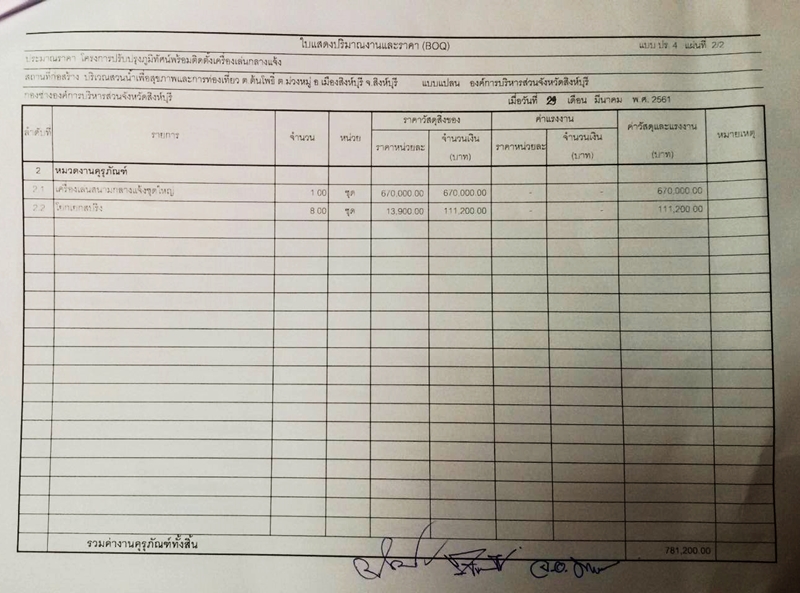 ใบแสดงปริมาณงานและราคา (BOQ) แบบ ปร. 4 แผ่นที่ 2/2
ประมาณราคา โครงการปรับปรุงภูมิทัศน์พร้อมติดตั้งเครื่องเล่นกลางแจ้ง
สถานที่ก่อสร้าง บริเวณสวนน้ำเพื่อสุขภาพและการท่องเที่ยว ต.ต้นโพธิ์ ต.ม่วงหมู่ อ.เมืองสิงห์บุรี จ.สิงห์บุรี แบบแปลน องค์การบริหารส่วนจังหวัดสิงห์บุรี
กองช่างองค์การบริหารส่วนจังหวัดสิงห์บุรี เมื่อวันที่ 29 เดือน มีนาคม พ.ศ. 2561
ลำดับที่ รายการ จำนวน หน่วย ราคาวัสดุสิ่งของ ค่าแรงงาน ค่าวัสดุและแรงงาน หมายเหตุ
ราคาหน่วยละ จำนวนเงิน ราคาหน่วยละ จำนวนเงิน
(บาท) (บาท) (บาท)
2 หมวดงานครุภัณฑ์
2.1 เครื่องเล่นสนามกลางแจ้งชุดใหญ่ 1.00 ชุด 670,000.00 670,000.00 - - 670,000.00
2.2 โยกเยกสปริง 8.00 ชุด 13,900.00 111,200.00 - - 111,200.00
รวมค่างานครุภัณฑ์ทั้งสิ้น 781,200.00